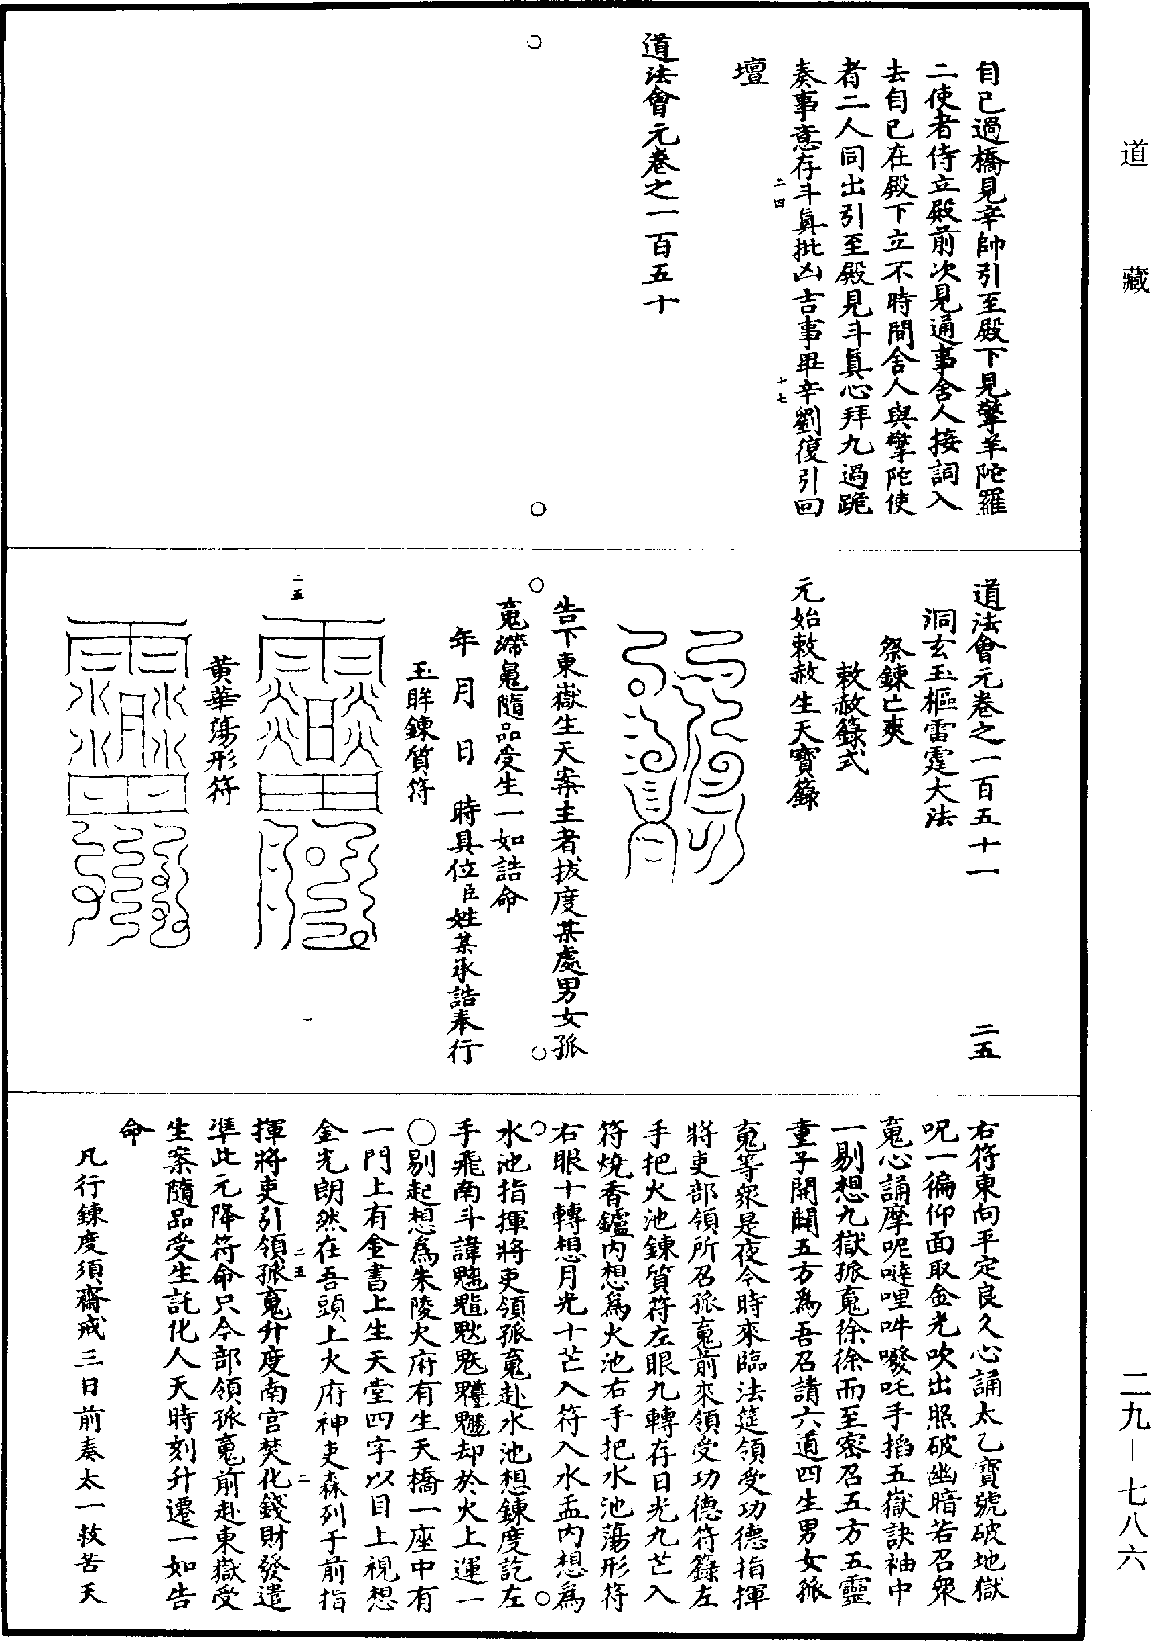 道藏
自已過橋見辛帥引至殿下見擎羊陀羅
二使者侍立殿前次見通事舍人接詞入
去自已在殿下立不時間舍人與擎陀使
者二人同出引至殿見斗真心拜九過跪
奏事意存斗真批凶吉事畢辛劉復引回
壇
二四
十七
道法會元卷之一百五十
道法會元卷之一百五十一
二五
洞玄玉樞雷霆大法
祭鍊亡爽
敕赦籙式
元始敕赦生天寶籙
告下東嶽生天案主者拔度某處男女孤
䰟滯魄隨品受生一如誥命
年 月 日 時具位臣姓某承誥奉行
玉眸鍊質符
一五
黃華蕩形符
右符東向平定良久心誦太乙寶號破地獄
呪一徧仰面取金光吹出照破幽暗若召眾
䰟心誦摩呢噠哩吽㗶吒手掐五嶽訣袖中
一剔想九獄孤䰟徐徐而至密召五方五靈
童子開闢五方爲吾召請六道四生男女孤
䰟等眾是夜今時來臨法筵領受功德指揮
將吏部領所召孤䰟前來領受功德符籙左
手把火池鍊質符左眼九轉存日光九芒入
符燒香鑪內想爲火池右手把水池蕩形符
右眼十轉想月光十芒入符入水盂內想爲
水池指揮將吏領孤䰟赴水池想鍊度訖左
手飛南斗諱却於火上運一
○剔起想爲朱陵火府有生天橋一座中有
一門上有金書上生天堂四字以目上視想
金光朗然在吾頭上火府神吏森列于前指
揮將吏引領孤䰟升度南宮焚化錢財發遣
二五
二
準此元降符命只今部領孤䰟前赴東嶽受
生案隨品受生託化人天時刻升遷一如告
命
凡行鍊度須齋戒三日前奏太一救苦天
二九—七八六